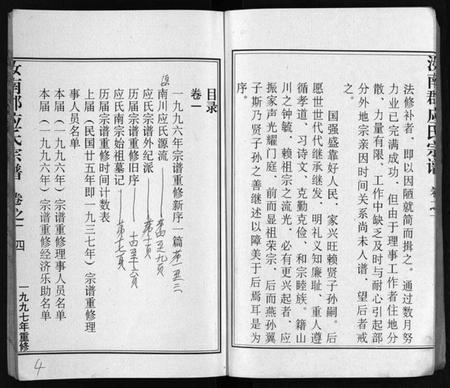 汝南郡应氏宗谱 卷之一
法修补者，即以因陋就简而揖之。通过数月努
力业已完满成功，但由于理事工作者住地分
散、力量有限、工作中缺乏及时与耐心引起部
分外地宗亲因时间关系尚未人谱，望后者戒
之。
国强盛靠好人民、家兴旺赖贤子孙嗣。后
愿世世代代继承继发、明礼义知廉耻、重人遵
循孝道、习诗文、克勤克俭、和宗睦族。籍山
川之钟毓、赖祖宗之流光，必有更兴起者、应
振家声光耀门庭、前而显祖荣宗、后而燕孙翼
子斯乃贤子孙之善继述以障美于后焉耳是为
序。
目录
卷一
一九九六年宗谱重修新序一篇
汝南川应氏源流
应氏宗谱外纪派
历届宗谱重修旧序
应氏南宗始祖墓记
历届宗谱重修时间计数表
上届（民国廿五年即一九三七年）宗谱重修理
事人员名单
本届（一九九六年）宗谱重修理事人员名单
本届（一九九六年）宗谱重修经济乐助名单
汝南郡应氏宗谱 卷之一 四
一九九七年重修
4